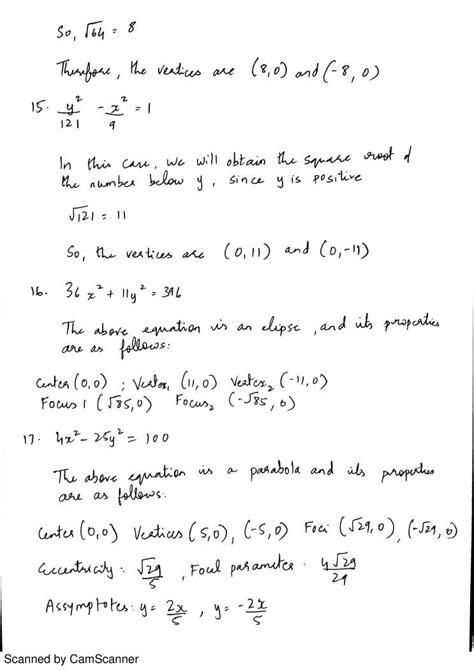 So, √64 = 8
Therefore, the vertices are (8,0) and (-8, 0)
15. y²/121 - x²/9 = 1
In this case, we will obtain the square root of
the number below y, since y is positive
√121 = 11
So, the vertices are (0,11) and (0,-11)
16. 36x² + 11y² = 396
The above equation is an elipse, and its properties
are as follows:
Center (0,0) ; Vertex₁ (11,0) Vertex₂ (-11,0)
Focus 1 (√85,0) Focus₂ (-√85, 0)
17. 4x² - 25y² = 100
The above equation is a parabola and its properties
are as follows:
Center (0,0) Vertices (5,0), (-5,0) Foci (√29,0), (-√29, 0)
Eccentricity: √29/5, Focal parameter: 4√29/29
Assymptotes: y = 2x/5, y = -2x/5
Scanned by CamScanner